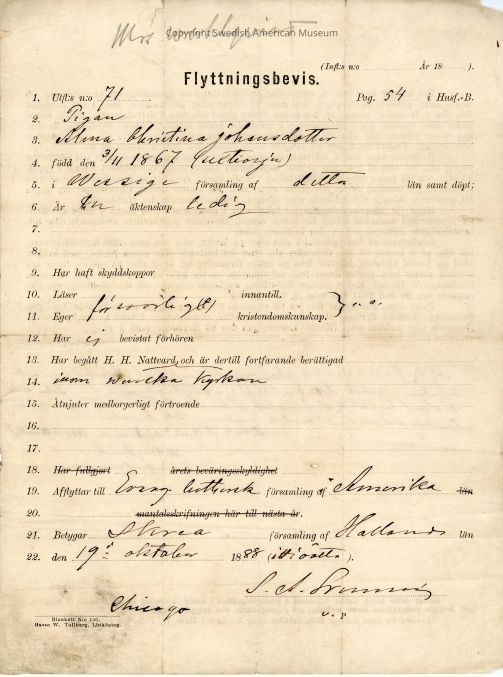 Mrs
Copyright Swedish American Museum
(Infl:s n:o År 18 ).
Flyttningsbevis.
1. Utfl:s n:o 71 Pag. 54 i Husf.-B.
2. Pigan
3. Alma Christina Johansdotter
4. född den 3/11 1867
5. i Wessige församling af detta län samt döpt;
6. Är äktenskap ledig
7.
8.
9. Har haft skyddskoppor
10. Läser innantill.
11. Eger försvarlig kristendomskunskap.
12. Har ej bevistat förhören
13. Har begått H. H. Nattvard, och är dertill fortfarande berättigad
14. inom svenska kyrkan
15. Åtnjuter medborgerligt förtroende
16.
17.
18. Har fullgjort årets beväringsskyldighet
19. Afflyttar till Evang Luthersk församling af Amerika län
20. mantalsskrifningen här till nästa år.
21. Betygar Skrea församling af Hallands län
22. den 19 oktober 1888 (åttioåtta).
S. A.
v. P
Chicago
Blankett N:o 130.
Harao W. Tullberg, Linköping.